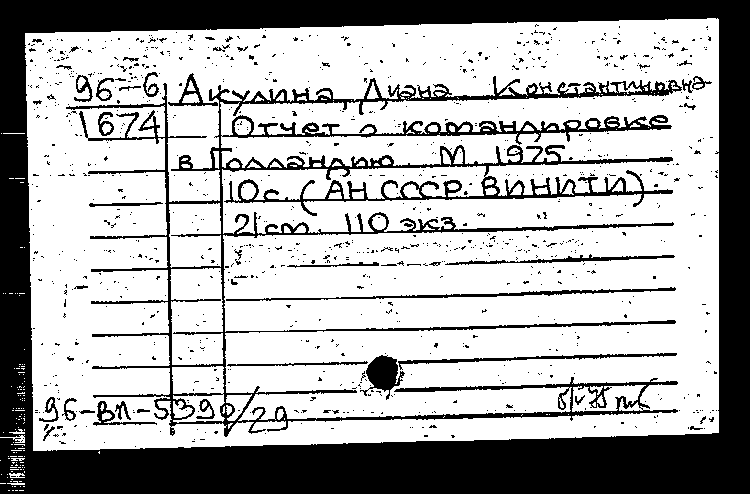 96-6 Акулина, Диана Константиновна
1674 Отчет о командировке
в Голландию. М., 1975.
10 с. (АН СССР. ВИНИТИ).
21 см. 110 экз.
96-вл-5390/29